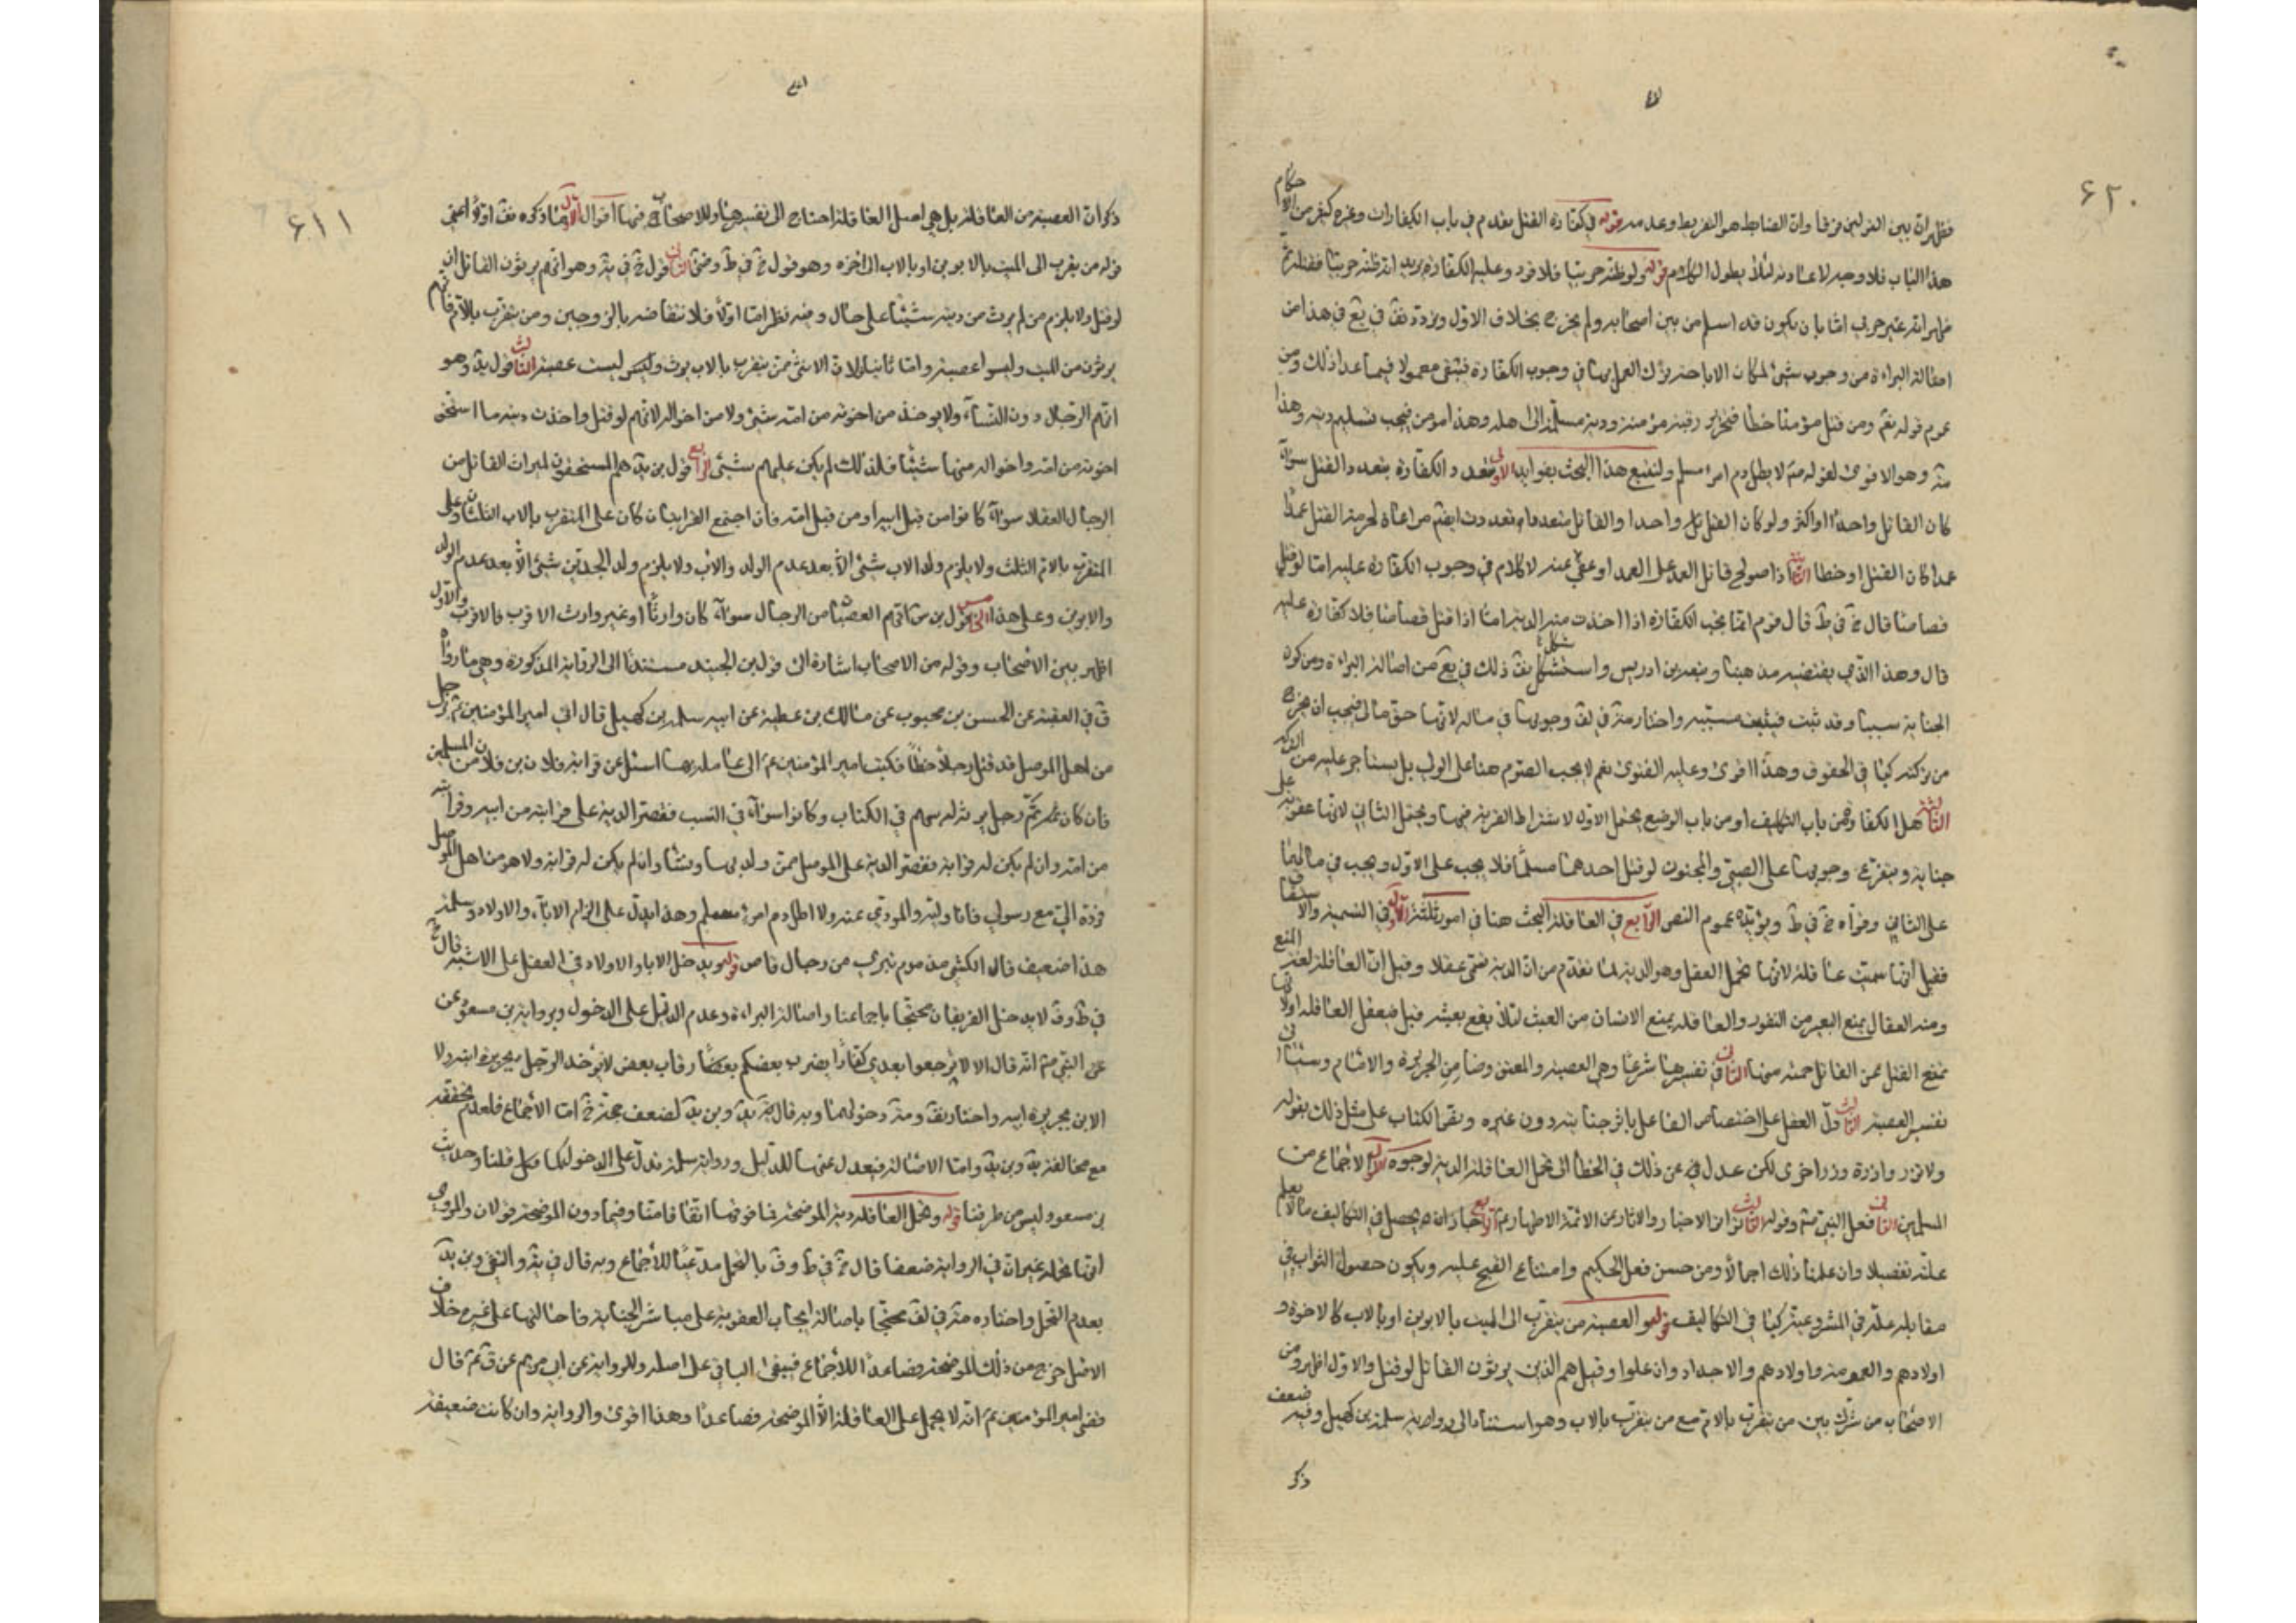 ۶۲۰
فظهر ان بين القولين فرقا وان الضابط هو التفريط وعدمه قوله في كفارة القتل تقدم في باب الكفارات وغيره كثير من الاحكام
هذا الباب فلا وجه لاعادته لئلا يطول الكلام قوله ولو ظنه حربيا فلا قود وعليه الكفارة يريد انه ظنه حربيا فقتله ثم
ظهر انه غير حربي اما بان يكون قد اسلم من بين اصحابه ولم يخرج بخلاف الاول وتردد في يع في هذا من
اصالة البراءة من وجوب شيئ لمكان الاباحة ترك العمل بها في وجوب الكفارة فيبقى معمولا فيما عدا ذلك ومن
عموم قوله تع ومن قتل مؤمنا خطأ فتحرير رقبة مؤمنة ودية مسلمة الى اهله وهذا مؤمن فيجب تسليم ديته وهذا
وهو الاقوى لقوله لا يطل دم امرئ مسلم ولنتبع هذا البحث بفوايد الاولى تتعدد الكفارة بتعدد القتل سواء
كان القاتل واحدا او اكثر ولو كان القتل واحدا والقاتل متعددا تعددت ايضا مراعاة لحرمة القتل عمدا
عمدا كان القتل او خطا الثانية اذا صولح قاتل العمد على العمد او عفي عنه لا كلام في وجوب الكفارة عليه اما لو قتل
قصاصا قال في ط قال قوم انما يجب الكفارة اذا اخذت منه الدية اما اذا قتل قصاصا فلا كفارة عليه
قال وهذا الذي يقتضيه مذهبنا وتبعه بن ادريس واستشكل ذلك في يع من اصالة البراءة ومن كون
الجناية سببا وقد ثبت فيثبت مسببه واختار في لف وجوبها في ماله لانها حق مالي فيجب ان يخرج
من تركته كباقي الحقوق وهذا اقوى وعليه الفتوى نعم لا يجب الصوم هنا على الولي بل يستاجر عليه من التركة
الثالثة هل الكفارة من باب التكليف او من باب الوضع يحتمل الاول لاشتراط القربة فيها ويحتمل الثاني لانها عقوبة على
جناية ويتفرع وجوبها على الصبي والمجنون لو قتل احدهما مسلما فلا يجب على الاول ويجب في مالهما
على الثاني وقواه في ط ويؤيده عموم النص الرابع في العاقلة البحث هنا في امور ثلثة الاول في التسمية والاشتقاق
فقيل انها سميت عاقلة لانها تحمل العقل وهو الدية لما تقدم من ان الدية تسمى عقلا وقيل ان العاقلة لغة المنع
ومنه العقال يمنع البعير من النفور والعاقلة يمنع الانسان من العبث لئلا يقع قيل فيعقل العاقلة او لانها
تمنع القتل عن القاتل حمته منها الثاني في تفسيرها شرعا وهي العصبة والمعتق وضامن الجريرة والامام وسياتي
تفسير العصبة الثالث دل العقل على اختصاص الفاعل باثر جنايته دون غيره ونص الكتاب على مثل ذلك بقوله
ولا تزر وازرة وزر اخرى لكن عدل عن ذلك في الخطأ الى تحمل العاقلة الدية لوجوه الاول الاجماع من
المسلمين الثاني فعل النبي وقوله الثالث تواتر الاخبار والاثار عن الائمة الاطهار الرابع جاز ان يحصل في التكاليف ما لا نعلم
علته تفصيلا وان علمنا ذلك اجمالا ومن حسن فعل الحكيم وامتناع القبيح عليه ويكون حصول الثواب في
مقابله علة في المشروعية كما في التكاليف قوله العصبة من يتقرب الى الميت بالابوين او بالاب كالاخوة و
اولادهم والعمومة واولادهم والاجداد وان علوا وقيل هم الذين يرثون القاتل لو قتل والاول اظهر ومن
الاصحاب من شرك بين من تقرب بالام مع من يتقرب بالاب وهو استناد الى رواية سلمة بن كهيل وفيه ضعف
ذكر
۶۱۱
ذكر ان العصبة من العاقلة بل هي اصل العاقلة احتاج الى تفسيرها وللاصحاب فيها اقوال الاول ما ذكره اولا اعني
قوله من يقرب الى الميت بالابوين او بالاب الى اخره وهو قول في ط الثاني قول في ية وهو انهم يرثون القاتل ان
لو قتل ولا يلزم من لم يرث من ديته شيئا على حال وفيه نظر اما اولا فلانتقاضه بالزوجين ومن يتقرب بالام فانهم
يرثون من الميت وليسوا عصبة واما ثانيا فلان الانثى ممن يتقرب بالاب يرث وليست عصبة الثالث قول وهو
انهم الرجال دون النساء ولا يؤخذ من اخوته من امه شيئ ولا من اخواله لانهم لو قتل واخذت ديته ما استحق
اخوته من امه واخواله منها شيئا فلذلك لم يكن عليهم شيئ الرابع قول بن هم المستحقون لميراث القاتل من
الرجال العقلاء سواء كانوا من قبل ابيه او من قبل امه فان اجتمع القرابتان كان على المتقرب بالاب الثلثان وعلى
المتقرب بالام الثلث ولا يلزم ولد الاب شيئ الا بعد عدم الولد والاب ولا يلزم ولد الجدين شيئ الا بعد عدم الولد
والابوين وعلى هذا الخامس قول بن انهم العصبات من الرجال سواء كان وارثا او غير وارث الاقرب فالاقرب والاول
اظهر بين الاصحاب وقوله من الاصحاب اشارة الى قول بن الجنيد مستندا الى الرواية المذكورة وهي ما رواه
ق في الفقيه عن الحسن بن محبوب عن مالك بن عطية عن ابيه سلمة بن كهيل قال اتي امير المؤمنين ع برجل
من اهل الموصل قد قتل رجلا خطأ فكتب امير المؤمنين ع الى عامله بها اسئل عن قرابة فلان بن فلان من المسلمين
فان كان ثم رجل يرثه له سهم في الكتاب وكانوا سواء في النسب ففض الدية على قرابته من ابيه وقرابته
من امه وان لم يكن له قرابة ففض الدية على الموصل ممن ولد بها ونشأ وان لم يكن له قرابة ولا هو من اهل الموصل
فرده الي مع رسولي فانا وليه والمودي عنه ولا اطل دم امرئ مسلم وهذا يدل على الزام الاباء والاولاد وسلمة
هذا ضعيف قال الكشي مذموم بتري من رجال قاص قوله ويدخل الاباء والاولاد في العقل على الاشبه قال
في ط وف لا يدخل الفريقان محتجا باجماعنا واصالة البراءة وعدم الدليل على الدخول وبرواية بن مسعود عن
عن النبي انه قال الا لا ترجعوا بعدي كفارا يضرب بعضكم رقاب بعض لا يؤخذ الرجل بجريرة ابنه ولا
الابن بجريرة ابيه واختار دخولهما وبه قال لضعف حجة اما الاجماع فلعدم تحققه
مع مخالفة واما الاصالة فيعدل عنها للدليل ورواية سلمة تدل على الدخول كما قلنا وحديث
بن مسعود ليس من طرقنا قوله وتحمل العاقلة دية الموضحة فما فوقها اتفاقا منا وفيما دون الموضحة قولان والمروي
انها تحمله غير ان في الرواية ضعفا قال في ط وف بالتحمل مدعيا للاجماع وبه قال في ية والتقي وبن
بعدم التحمل واختاره في لف محتجا باصالة ايجاب العقوبة على مباشر الجناية فاحالتها على غيره خلاف
الاصل خرج من ذلك الموضحة فصاعدا للاجماع فيبقى الباقي على اصله وللرواية عن ابي مريم عن ق ع قال
قضى امير المؤمنين ع انه لا يحمل على العاقلة الا الموضحة فصاعدا وهذا اقوى والرواية وان كانت ضعيفة